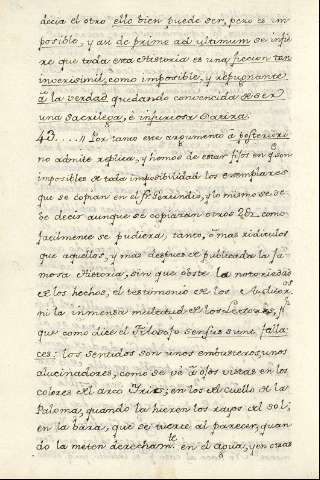 decia el otro ello bien puede ser, pero es im-
posible, y asi de primo ad ultimum se infie
re que toda esta Historia es una ficcion tan
inverisimil, como imposible, y repugnante
à la verdad quedando convencida de ser
una sacrilega, è infuriosa Satira.
43....// Por tanto este argumento à posteriori
no admite replica, y hemos de estar fijos en q.e son
imposibles de toda imposibilidad los exemplares
que se copian en el fr. Gerundio, y lo mismo se de
be decir aunque se copiaran otros 20 como
facilmente se pudiera, tanto, ò mas ridiculos
que aquellos, y mas despues de publicada la fa-
mosa Historia, sin que obste la notoriedad
de los hechos, el testimonio de los Auditor.os
ni la inmensa multitud de los Lectores, p.r
que como dice el Filosofo sensus sunt falla
ces: los sentidos son unos embusteros, unos
alucinadores, como se vè à ojos vistas en los
colores del arco Iris; en los del cuello de la
Paloma, quando la hieren los rayos del sol;
en la bara, que se tuerce al parecer, quan
do la meten derecham.te en el agua, y en otras